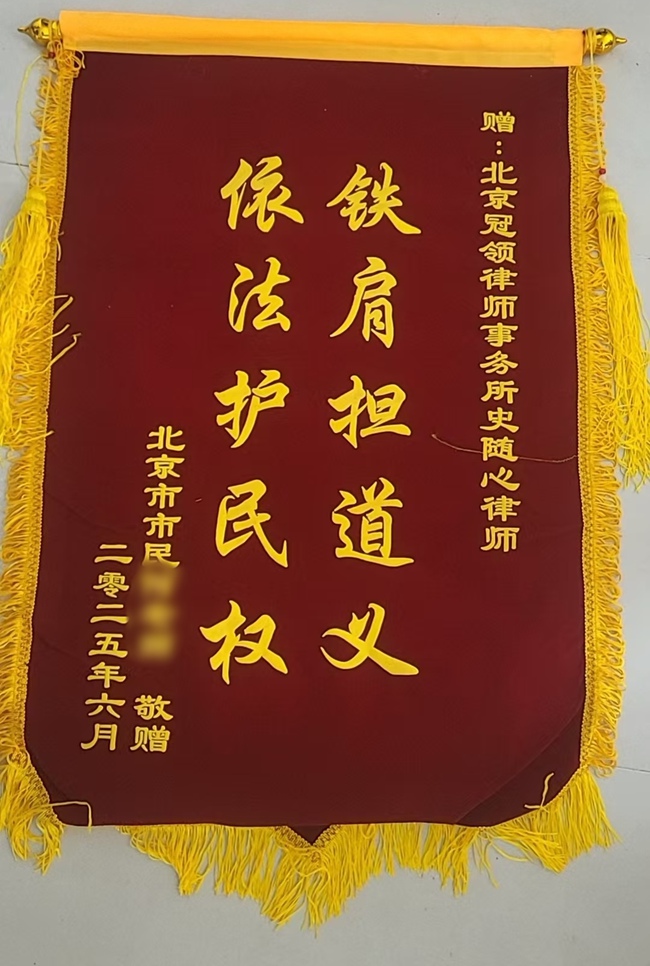 赠：北京冠领律师事务所史随心律师
铁肩担道义
依法护民权
北京市市民 敬赠
二零二五年六月